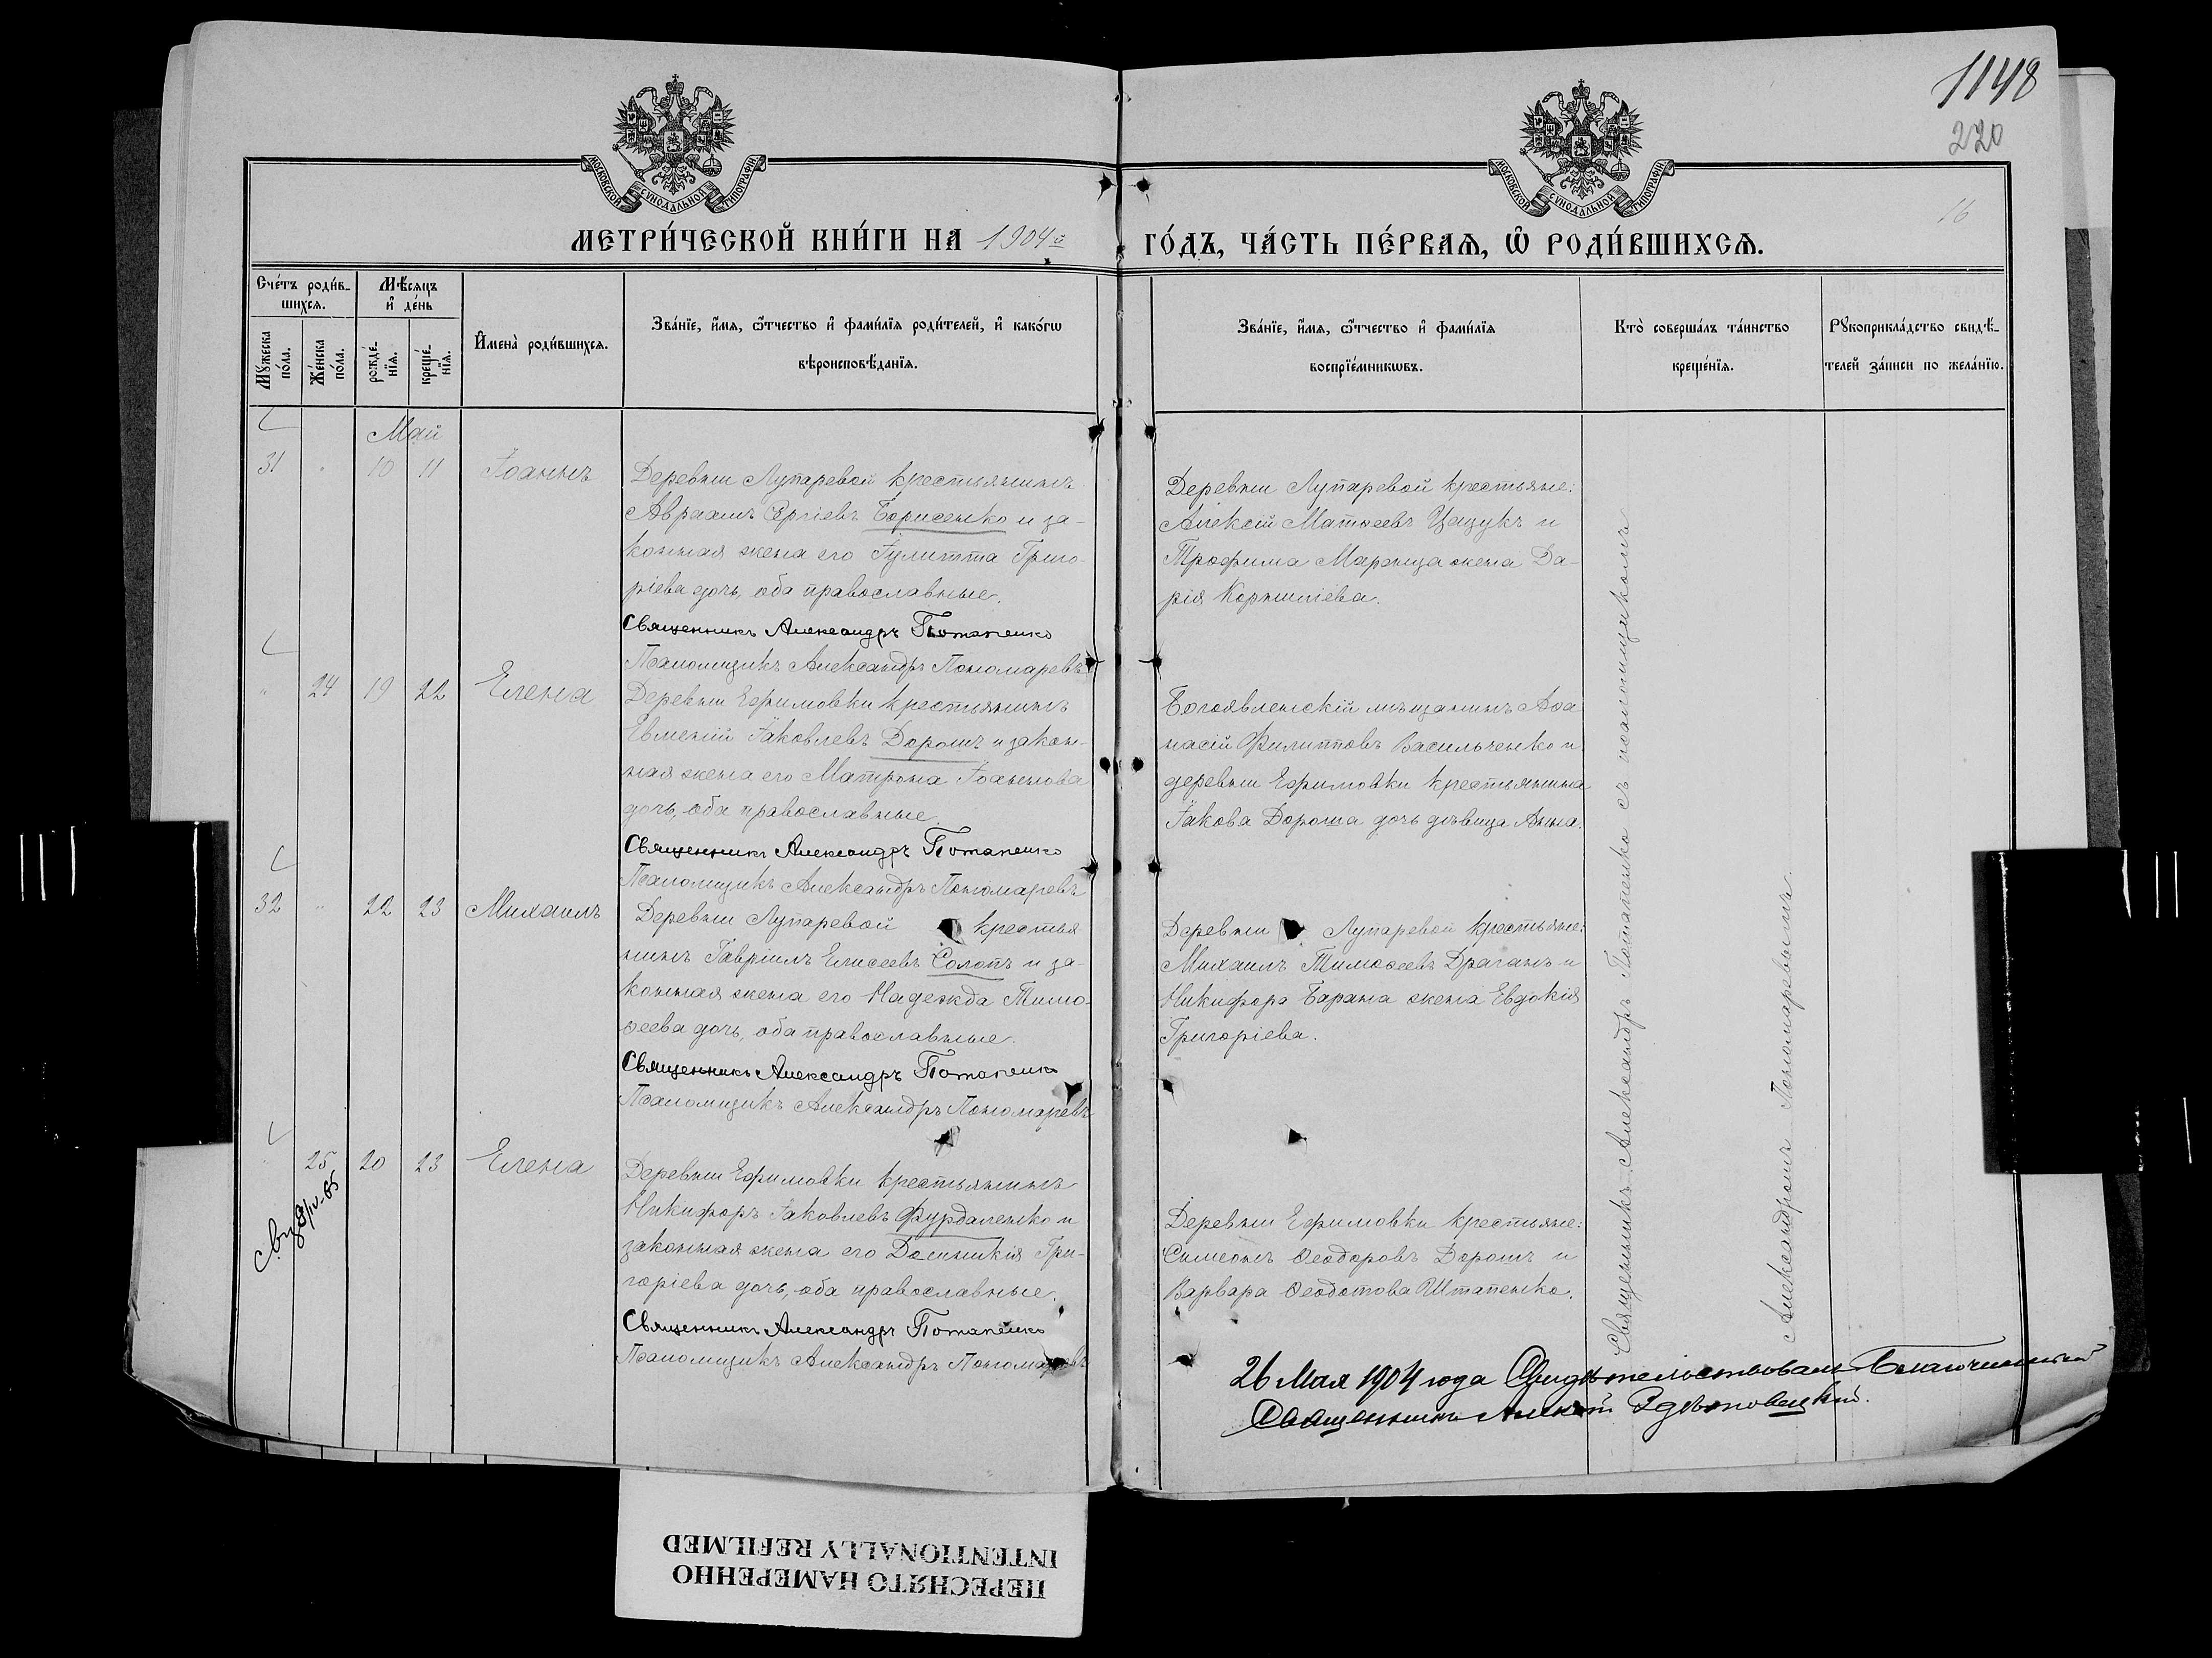 1148
220
16
МОСКОВСКОЙ СѴНОДАЛЬНОЙ ТИПОГРАФІИ
МОСКОВСКОЙ СѴНОДАЛЬНОЙ ТИПОГРАФІИ
МЕТРИ́ЧЕСКОЙ КНИ́ГИ НА 1904й ГО́ДЪ, ЧА́СТЬ ПЕ́РВАѦ, Ѡ҆ РОДИ́ВШИХСѦ.
Сче́тъ роди́в-
шихсѧ.
Мѣ́сяцъ
и҆ де́нь
Мꙋ́жеска
по́ла.
Же́нска
по́ла.
рожде́-
нїѧ.
креще́-
нїѧ.
И҆мена̀ роди́вшихсѧ.
Зва́нїе, и҆́мѧ, ѻ҆́тчество и҆ фами́лїѧ роди́телей, и҆ како́гѡ
вѣроисповѣ́данїѧ.
Зва́нїе, и҆́мѧ, ѻ҆́тчество и҆ фами́лїѧ
воспрїе́мникѡвъ.
Кто̀ соверша́лъ та́инство
креще́нїѧ.
Рꙋкоприкла́дство свидѣ́-
телей за́писи по жела́нїю.
Май
31 " 10 11 Іоаннъ
Деревни Лупаревой крестьянинъ
Авраамъ Сергіевъ Борисенко и за-
конная жена его Іулитта Григо-
ріева дочь, оба православные.
Священникъ Александръ Потапенко
Псаломщикъ Александръ Пономаревъ
Деревни Лупаревой крестьяне:
Алексій Матѳеевъ Цацукъ и
Трофима Маранца жена Да-
рія Корниліева.
" 24 19 22 Елена
Деревни Ефимовки крестьянинъ
Евменій Іаковлевъ Дорошъ и закон-
ная жена его Матрона Іоаннова
дочь, оба православные.
Священникъ Александръ Потапенко
Псаломщикъ Александръ Пономаревъ
Богоявленскій мѣщанинъ Аѳа
насій Филипповъ Васильченко и
деревни Ефимовки крестьянина
Іакова Дороша дочь дѣвица Анна.
32 " 22 23 Михаилъ
Деревни Лупаревой крестья
нинъ Гавріилъ Елисеевъ Солопъ и за-
конная жена его Надежда Тимо-
ѳеева дочь, оба православные.
Священникъ Александръ Потапенко
Псаломщикъ Александръ Пономаревъ
Деревни Лупаревой крестьяне:
Михаилъ Тимоѳеевъ Драганъ и
Никифора Барана жена Евдокія
Григоріева.
" 25 20 23 Елена
8/IV-65
Деревни Ефимовки крестьянинъ
Никифоръ Іаковлевъ Фурдаленко и
законная жена его Домникія Гри-
горіева дочь, оба православные.
Священникъ Александръ Потапенко
Псаломщикъ Александръ Пономаревъ
Деревни Ефимовки крестьяне:
Симеонъ Ѳеодоровъ Дорошъ и
Варвара Ѳеодотова Штапенко.
Священникъ Александръ Потапенко съ псаломщикомъ
Александромъ Пономаревымъ.
26 Мая 1904 года Свидѣтельствовалъ Благочинный
Священникъ Алексій
ПЕРЕСНЯТО НАМЕРЕННО
INTENTIONALLY REFILMED